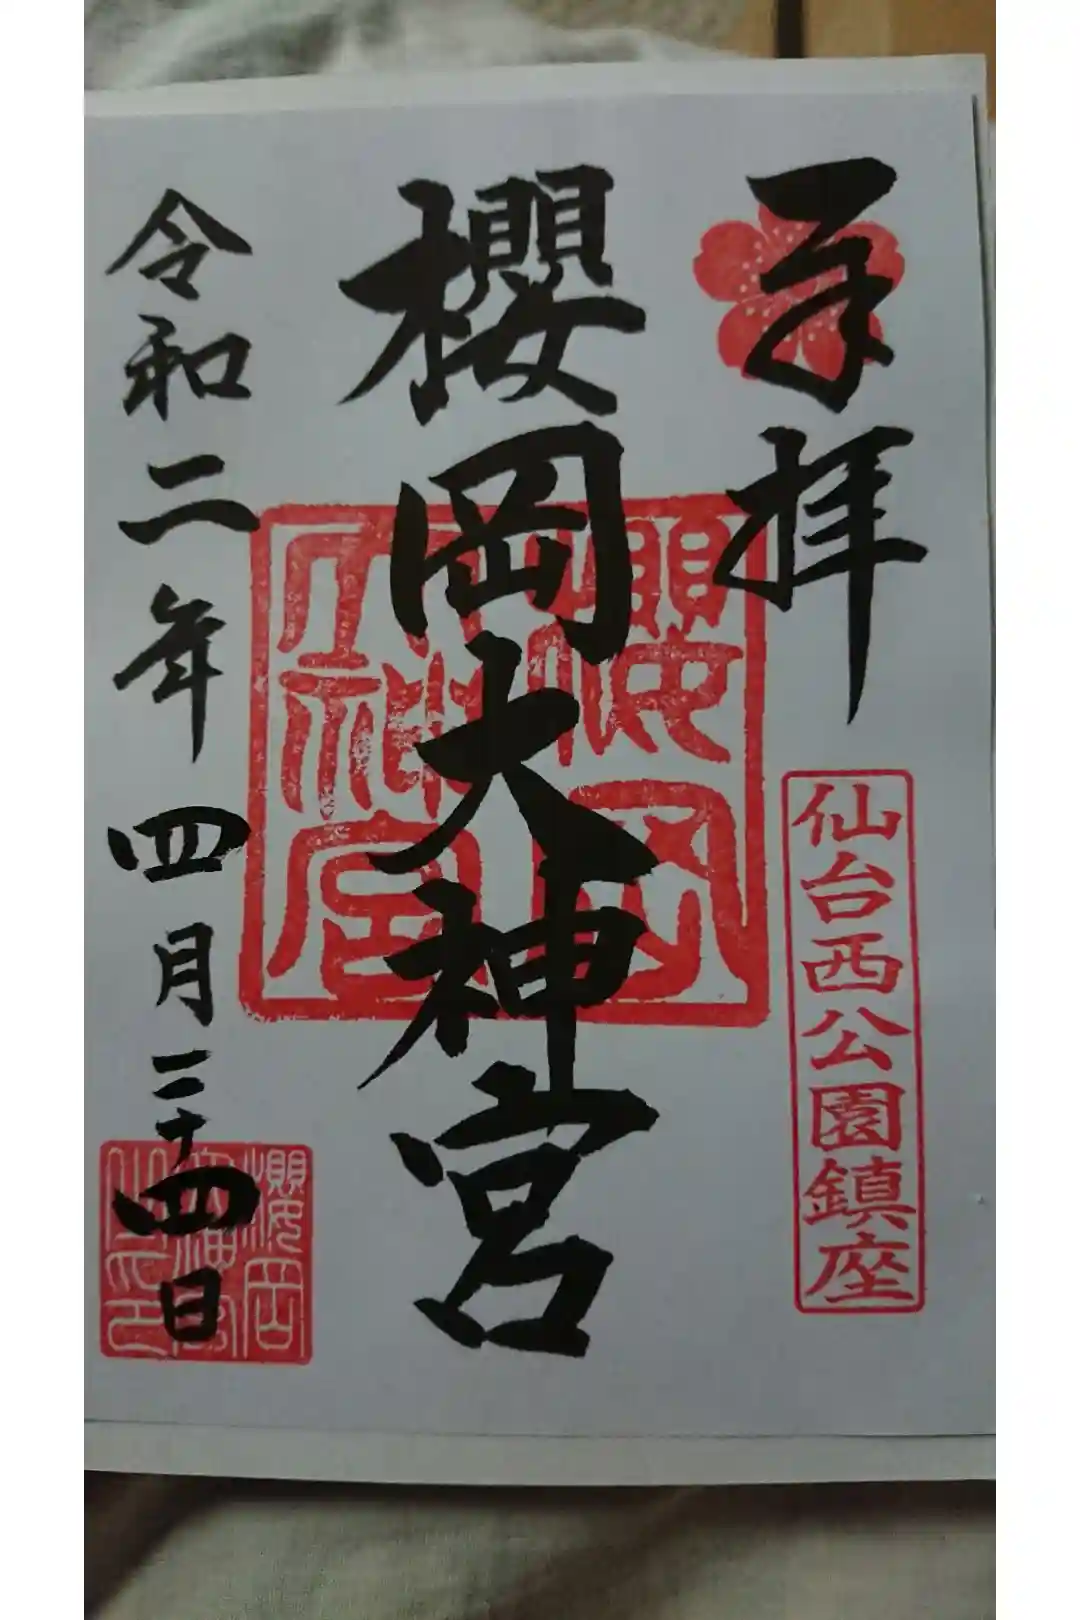 奉拝
仙台西公園鎮座
櫻岡大神宮
櫻岡
大神宮
令和二年 四月二十四日